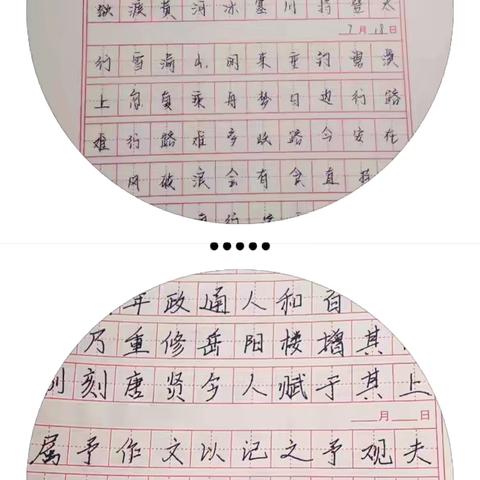 欲渡黄河冰塞川将登太
7月18日
行雪满山闲来垂钓碧溪
上忽复乘舟梦日边行路
难行路难多歧路今安在
风破浪会有直挂
年政通人和百
乃重修岳阳楼增其
刻唐贤今人赋于其上
月 日
属予作文以记之予观夫